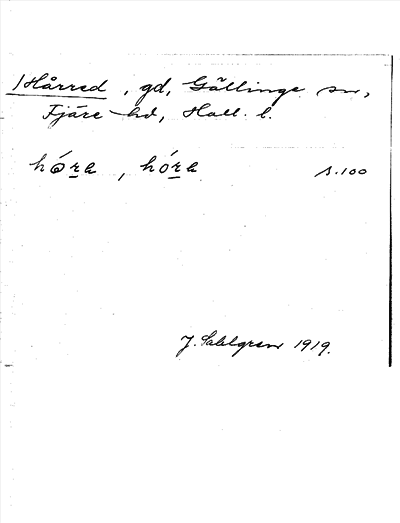 /Hårred, gd, Gällinge sn,
Fjäre hd, Hall. l.
hó̱ra, hóra s.100
J. Sahlgren 1919.